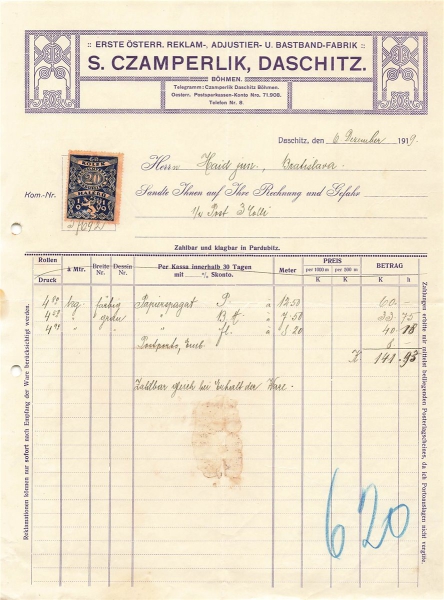 :: ERSTE ÖSTERR. REKLAM-, ADJUSTIER- U. BASTBAND-FABRIK ::
S. CZAMPERLIK, DASCHITZ.
BÖHMEN.
Telegramm: Czamperlik Daschitz Böhmen.
Oesterr. Postsparkassen-Konto Nro. 71.908.
Telefon Nr. 8.
Daschitz, den 6 Dezember 1919.
Herrn Haid jun., Bratislava.
Kom.-Nr.
KOLEK
20
HALÉŘŮ
Sandte Ihnen auf Ihre Rechnung und Gefahr
p. Post 3 Colli
Zahlbar und klagbar in Pardubitz.
Rollen
Druck
à Mtr.
Breite Nr.
Dessin Nr.
Per Kassa innerhalb 30 Tagen
mit % Skonto.
Meter
PREIS
per 1000 m
per 500 m
K
K
BETRAG
K
h
färbig Papierspagat 12.50 60 -
grün 7.50 33 75
8.20 40 18
Postporto, Emb 8 -
K 141.93
Zahlbar gleich bei Erhalt der Ware.
620
Reklamationen können nur sofort nach Empfang der Ware berücksichtigt werden.
Zahlungen erbitte mir mittelst beiliegenden Posterlagscheines, da ich Portoauslagen nicht vergüte.